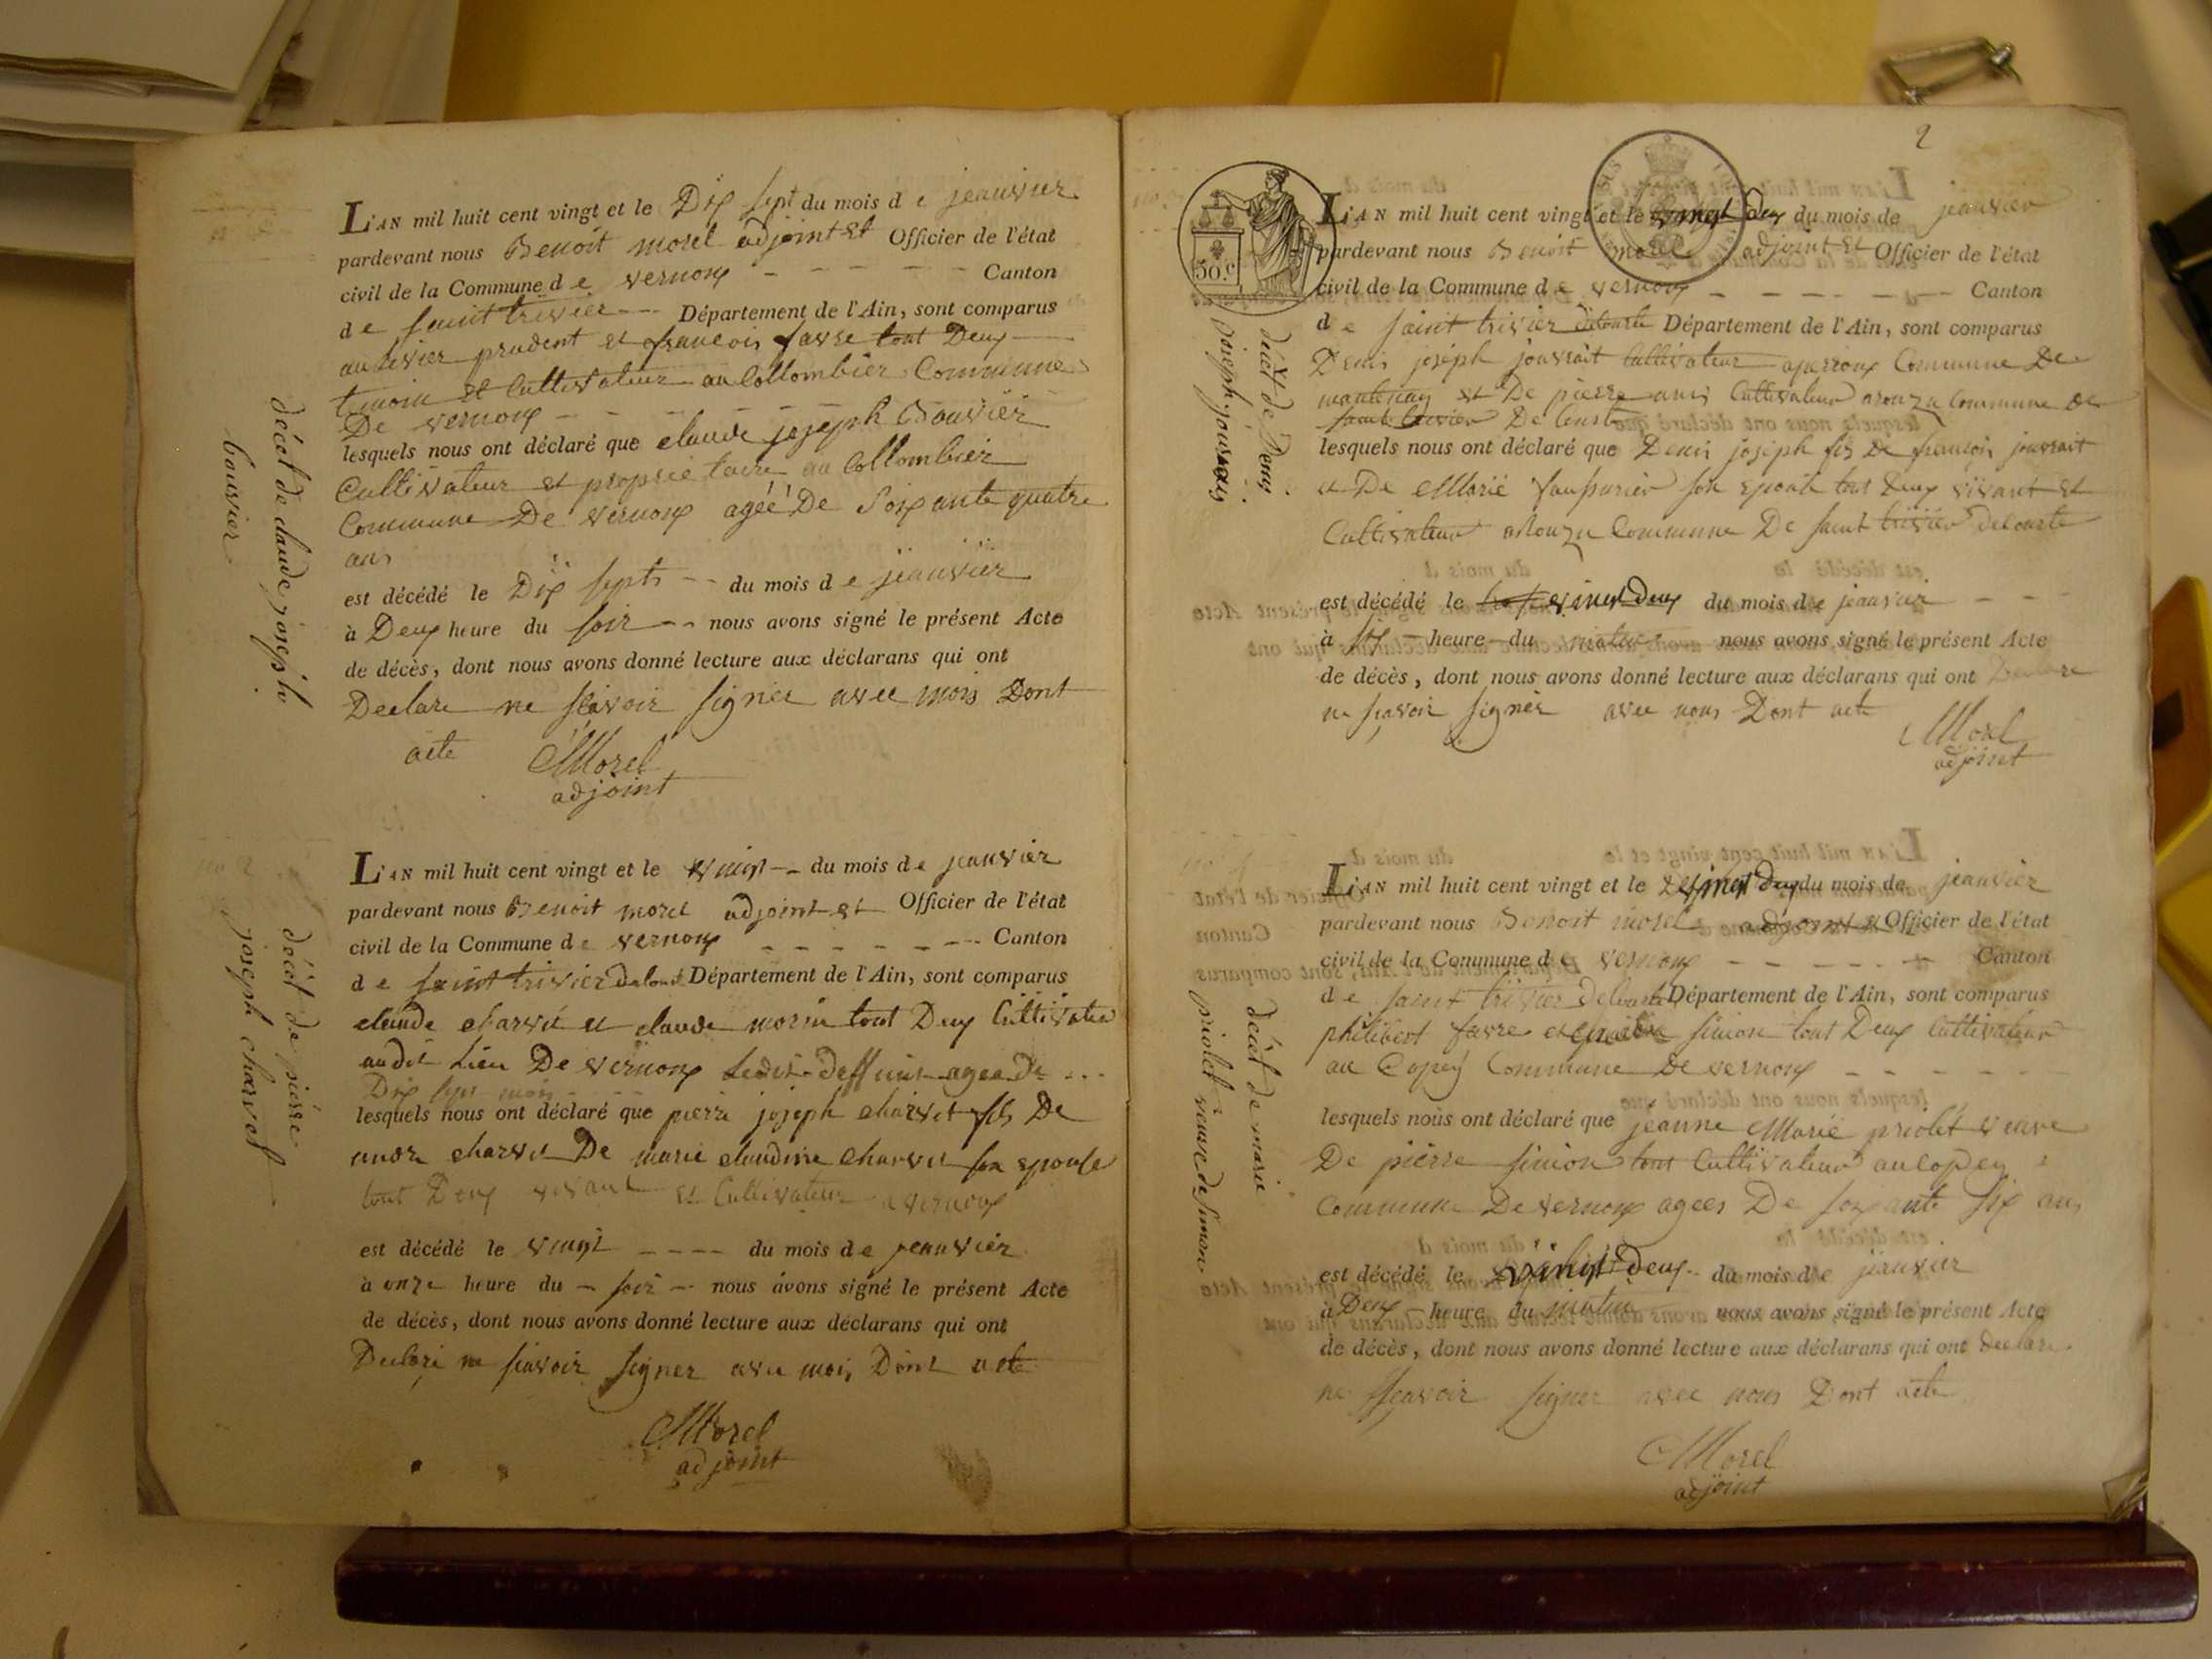 L'AN mil huit cent vingt et le Dix sept du mois de jeanvier
pardevant nous Benoit morel adjoint et Officier de l'état
civil de la Commune de vernoux - - - - - - Canton
de saint trivier --- Département de l'Ain, sont comparus
prudent et francois favre tout Deux
temoin et Cultivateur au Collombier Commune
De vernoux - - - - - -
lesquels nous ont déclaré que claude joseph Bouvier
Cultivateur et proprietaire au Collombier
Commune De vernoux agéé De Soixante quatre
ans
est décédé le Dix septs -- du mois de jeanvier
à Deux heure du soir -- nous avons signé le présent Acte
de décès, dont nous avons donné lecture aux déclarans qui ont
Declare ne scavoir signer avec mois Dont
acte Morel
adjoint
décét de claude joseph
bouvier
L'AN mil huit cent vingt et le vingt -- du mois de jeanvier
pardevant nous Benoit morel adjoint et Officier de l'état
civil de la Commune de vernoux - - - - - - - Canton
de saint trivier Département de l'Ain, sont comparus
claude charvet et claude morin tout Deux Cultivateur
audit Lieu De vernoux Ledit deffunt agee de ...
Dix sept mois
lesquels nous ont déclaré que pierre joseph charvet fils De
charvet De marie claudine charvet son epouse
tout Deux vivant et Cultivateur a vernoux
est décédé le vingt ---- du mois de jeanvier
à onze heure du - soir - nous avons signé le présent Acte
de décès, dont nous avons donné lecture aux déclarans qui ont
Declare ne scavoir signer avec mois Dont acte
Morel
adjoint
décét de pierre
joseph charvet
2
50.c
L'AN mil huit cent vingt et le vingt deux du mois de jeanvier
pardevant nous Benoit morel adjoint et Officier de l'état
civil de la Commune de vernoux - - - - - Canton
de saint trivier decourte Département de l'Ain, sont comparus
Denis joseph jouvrait Cultivateur Commune De
mantenay et De pierre Cultivateur Commune De
saint trivier De Courte
lesquels nous ont déclaré que Denis joseph fils De francois jouvrait
et De Marie son epouse tout Deux vivant et
Cultivateur Commune De saint trivier decourte
est décédé le vingt Deux du mois de jeanvier - - -
à heure du matin nous avons signé le présent Acte
de décès, dont nous avons donné lecture aux déclarans qui ont Declare
ne scavoir signer avec nous Dont acte
Morel
adjoint
décét de Denis
joseph
L'AN mil huit cent vingt et le vingt Deux du mois de jeanvier
pardevant nous Benoit morel adjoint et Officier de l'état
civil de la Commune de vernoux - - - - - - Canton
de saint trivier Decourte Département de l'Ain, sont comparus
philibert favre et simon tout Deux Cultivateur
au Copey Commune De vernoux - - - - - -
lesquels nous ont déclaré que jeanne Marie priolet veuve
De pierre simon tout Cultivateur au copey
Commune De vernoux agees De soixante six ans
est décédé le vingt Deux du mois de jeanvier
à Deux heure du matin nous avons signé le présent Acte
de décès, dont nous avons donné lecture aux déclarans qui ont declare
ne scavoir signer avec nous Dont acte
Morel
adjoint
décét de marie
priolet veuve de simon